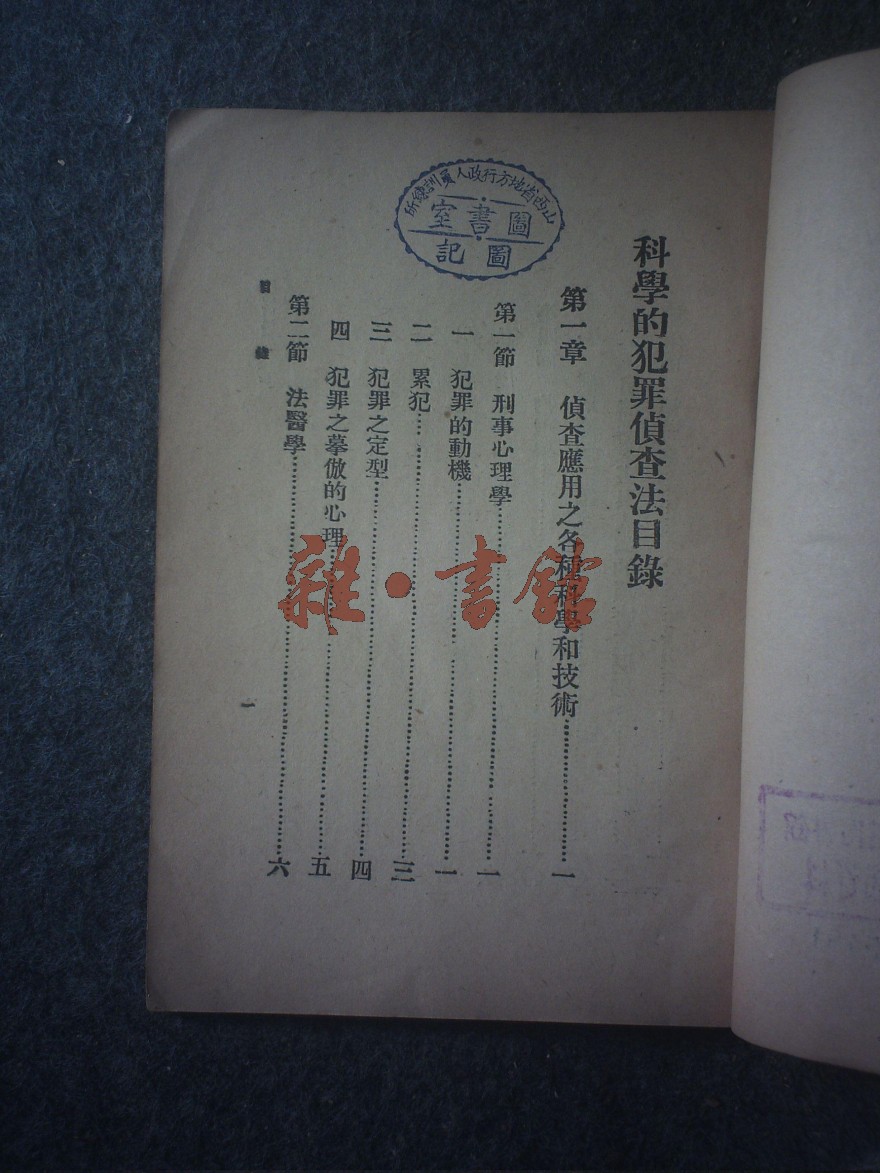 科學的犯罪偵查法目錄
第一章　偵查應用之各種科學和技術……一
第一節　刑事心理學……一
一　犯罪的動機……一
二　累犯……三
三　犯罪之定型……四
四　犯罪之摹倣的心理……五
第二節　法醫學……六
目　錄
一
山西省地方行政人員訓練所
圖書室
圖記
雜·書館